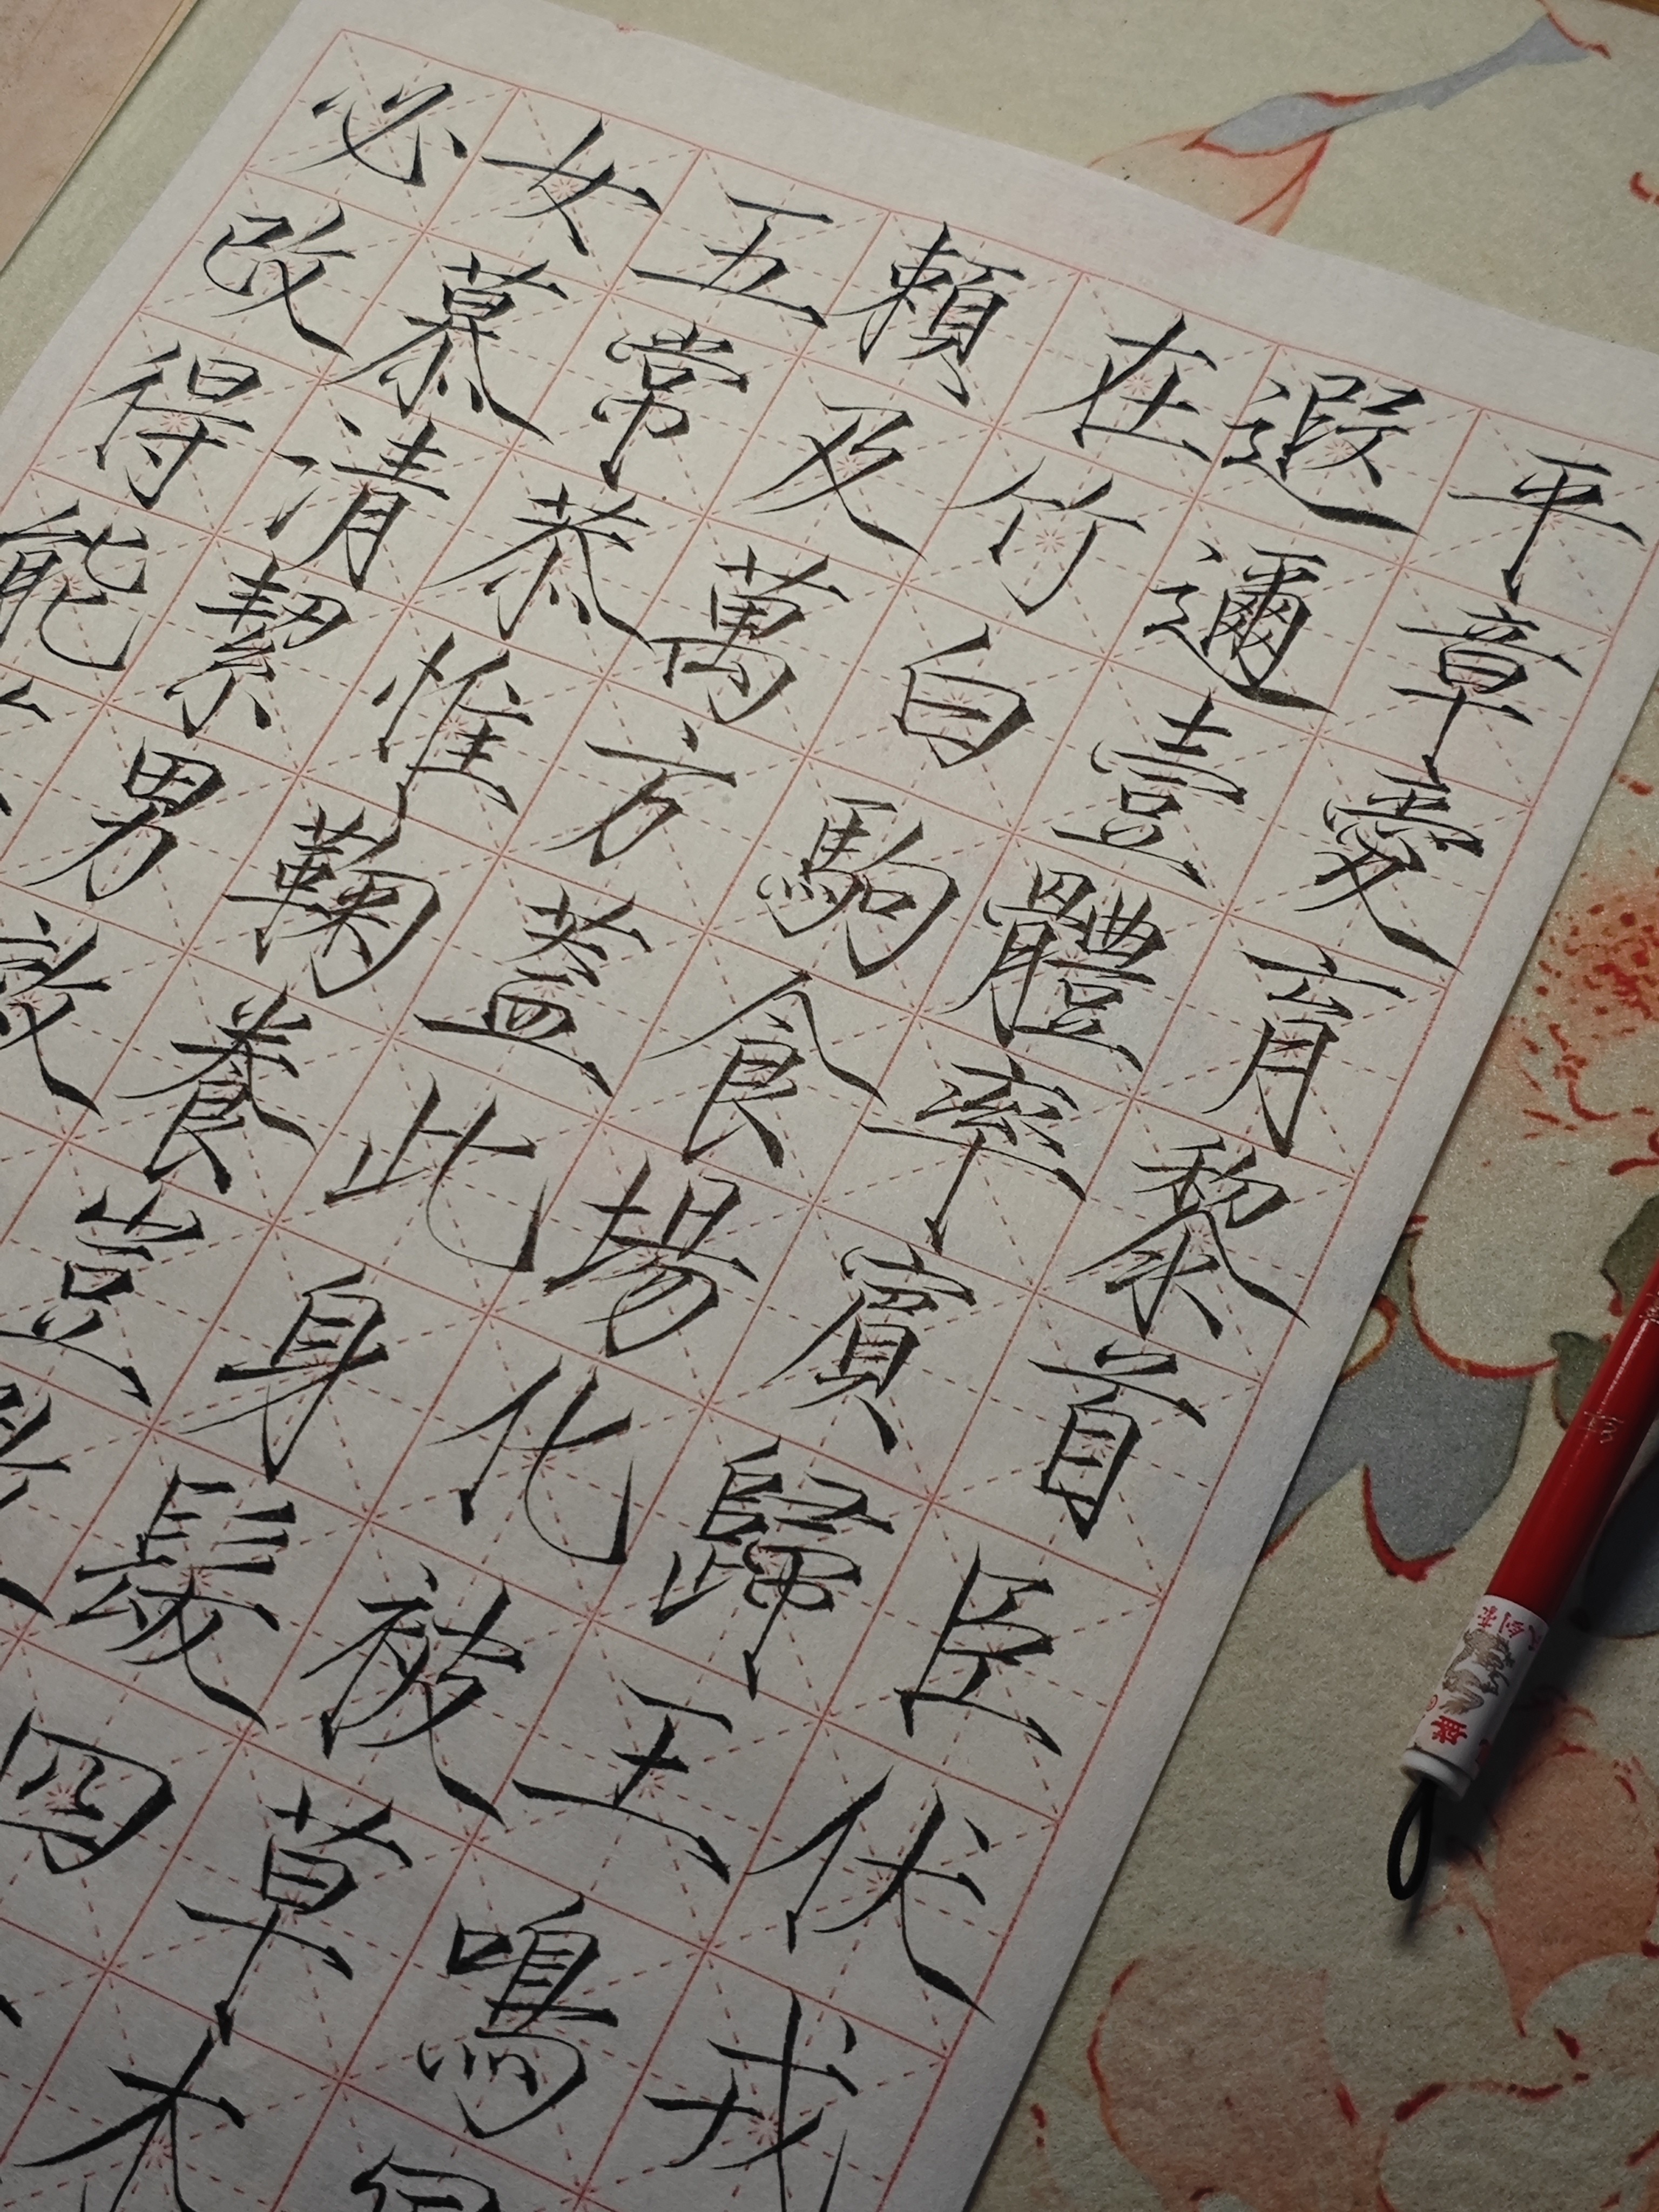 平章愛育黎首臣伏戎
遐邇壹體率賓歸王鳴
在竹白駒食場化被草木
賴及萬方蓋此身髮四
五常恭惟鞠養豈
女慕清絜男效
必改得能